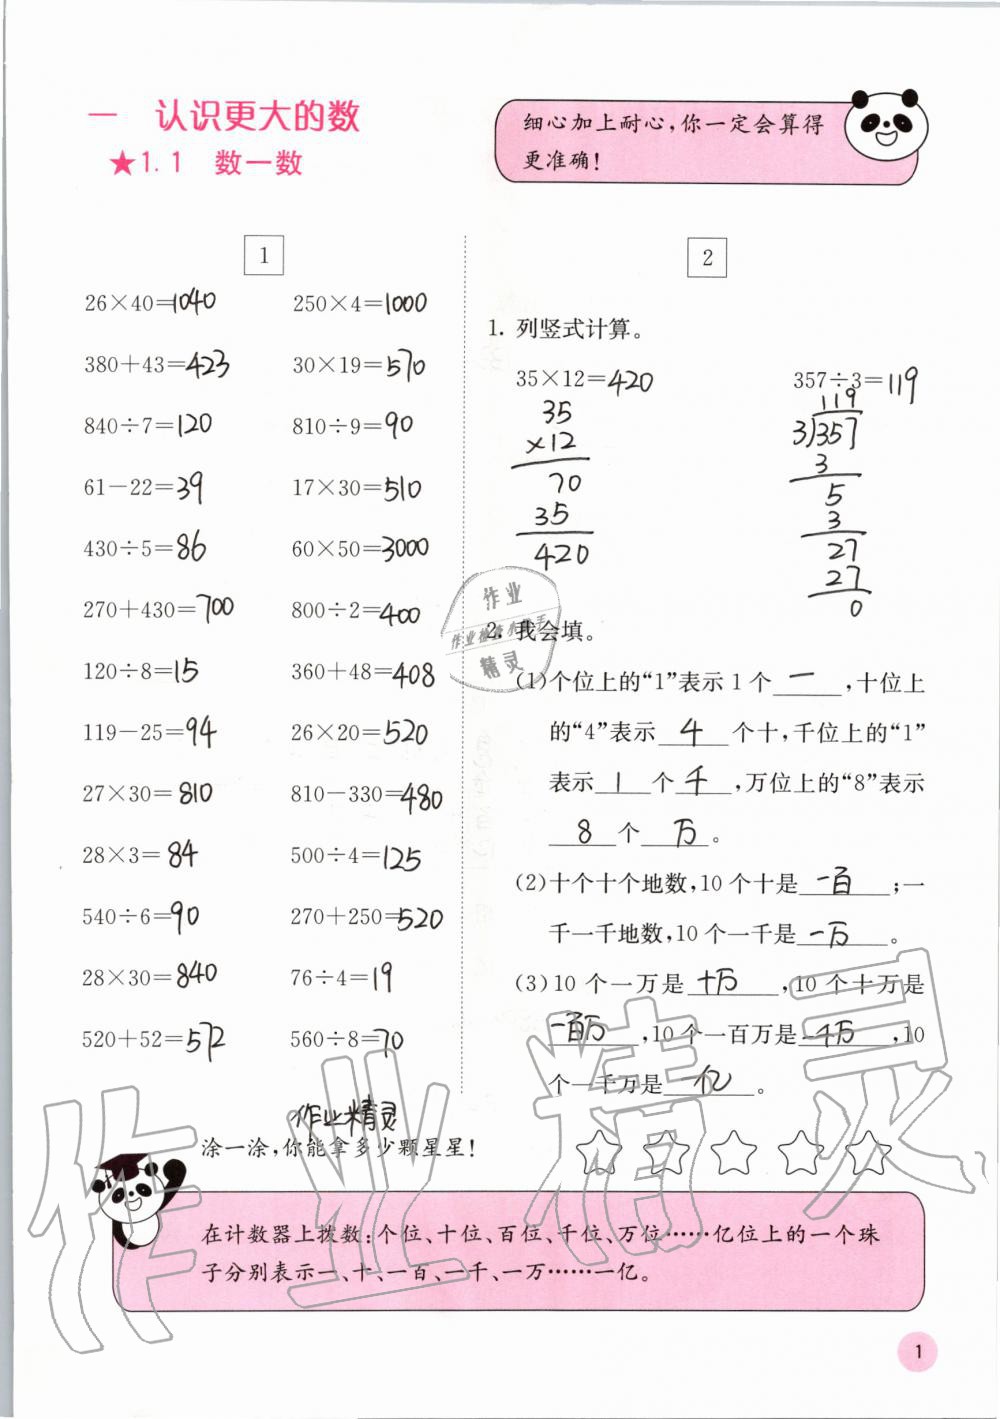 一 认识更大的数
★1.1 数一数
细心加上耐心,你一定会算得
更准确!
1
26×40=1040 250×4=1000
380+43=423 30×19=570
840÷7=120 810÷9=90
61-22=39 17×30=510
430÷5=86 60×50=3000
270+430=700 800÷2=400
120÷8=15 360+48=408
119-25=94 26×20=520
27×30=810 810-330=480
28×3=84 500÷4=125
540÷6=90 270+250=520
28×30=840 76÷4=19
520+52=572 560÷8=70
2
1. 列竖式计算。
35×12=420 357÷3=119
35
×12
70
35
420
119
3)357
3
5
3
27
27
0
2. 我会填。
(1)个位上的“1”表示1个一,十位上
的“4”表示4个十,千位上的“1”
表示1个千,万位上的“8”表示
8个万。
(2)十个十个地数,10个十是一百;一
千一千地数,10个一千是一万。
(3)10个一万是十万,10个十万是
一百万,10个一百万是一千万,10
个一千万是一亿。
作业精灵
涂一涂,你能拿多少颗星星!
在计数器上拨数:个位、十位、百位、千位、万位……亿位上的一个珠
子分别表示一、十、一百、一千、一万……一亿。
1
作业
作业检查小帮手
精灵
作业精灵